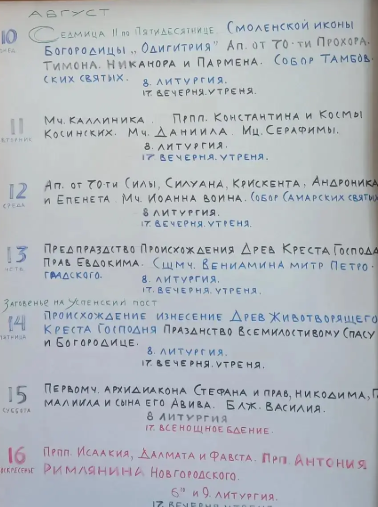 АВГУСТ
10 СЕДМИЦА 11 ПО ПЯТИДЕСЯТНИЦЕ. СМОЛЕНСКОЙ ИКОНЫ
БОГОРОДИЦЫ „ОДИГИТРИЯ" АП. ОТ 70-ТИ ПРОХОРА,
ТИМОНА, НИКАНОРА И ПАРМЕНА. СОБОР ТАМБОВ-
СКИХ СВЯТЫХ. 8. ЛИТУРГИЯ.
17. ВЕЧЕРНЯ. УТРЕНЯ.
11 МЧ. КАЛЛИНИКА. ПРПП. КОНСТАНТИНА И КОСМЫ
ВТОРНИК КОСИНСКИХ. МЧ. ДАНИИЛА. МЦ. СЕРАФИМЫ.
8. ЛИТУРГИЯ.
17. ВЕЧЕРНЯ. УТРЕНЯ.
12 АП. ОТ 70-ТИ СИЛЫ, СИЛУАНА, КРИСКЕНТА, АНДРОНИКА
СРЕДА И ЕПЕНЕТА. МЧ. ИОАННА ВОИНА. СОБОР САМАРСКИХ СВЯТЫХ
8. ЛИТУРГИЯ.
17. ВЕЧЕРНЯ. УТРЕНЯ.
13 ПРЕДПРАЗДСТВО ПРОИСХОЖДЕНИЯ ДРЕВ КРЕСТА ГОСПОДА
ПРАВ ЕВДОКИМА. СЩМЧ. ВЕНИАМИНА МИТР ПЕТРО-
ГРАДСКОГО. 8. ЛИТУРГИЯ.
17. ВЕЧЕРНЯ. УТРЕНЯ.
ЗАГОВЕНЬЕ НА УСПЕНСКИЙ ПОСТ
14 ПРОИСХОЖДЕНИЕ ИЗНЕСЕНИЕ ДРЕВ ЖИВОТВОРЯЩЕГО
ПЯТНИЦА КРЕСТА ГОСПОДНЯ ПРАЗДНСТВО ВСЕМИЛОСТИВОМУ СПАСУ
И БОГОРОДИЦЕ.
8. ЛИТУРГИЯ.
17. ВЕЧЕРНЯ. УТРЕНЯ.
15 ПЕРВОМЧ. АРХИДИАКОНА СТЕФАНА И ПРАВ, НИКОДИМА, Г
СУББОТА МАЛИИЛА И СЫНА ЕГО АВИВА. БЛЖ. ВАСИЛИЯ.
8 ЛИТУРГИЯ
17. ВСЕНОЩНОЕ БДЕНИЕ.
16 ПРПП. ИСААКИЯ, ДАЛМАТА И ФАВСТА. ПРП. АНТОНИЯ
РИМЛЯНИНА НОВГОРОДСКОГО.
6³⁰ и 9. ЛИТУРГИЯ.
17. ВЕЧЕРНЯ